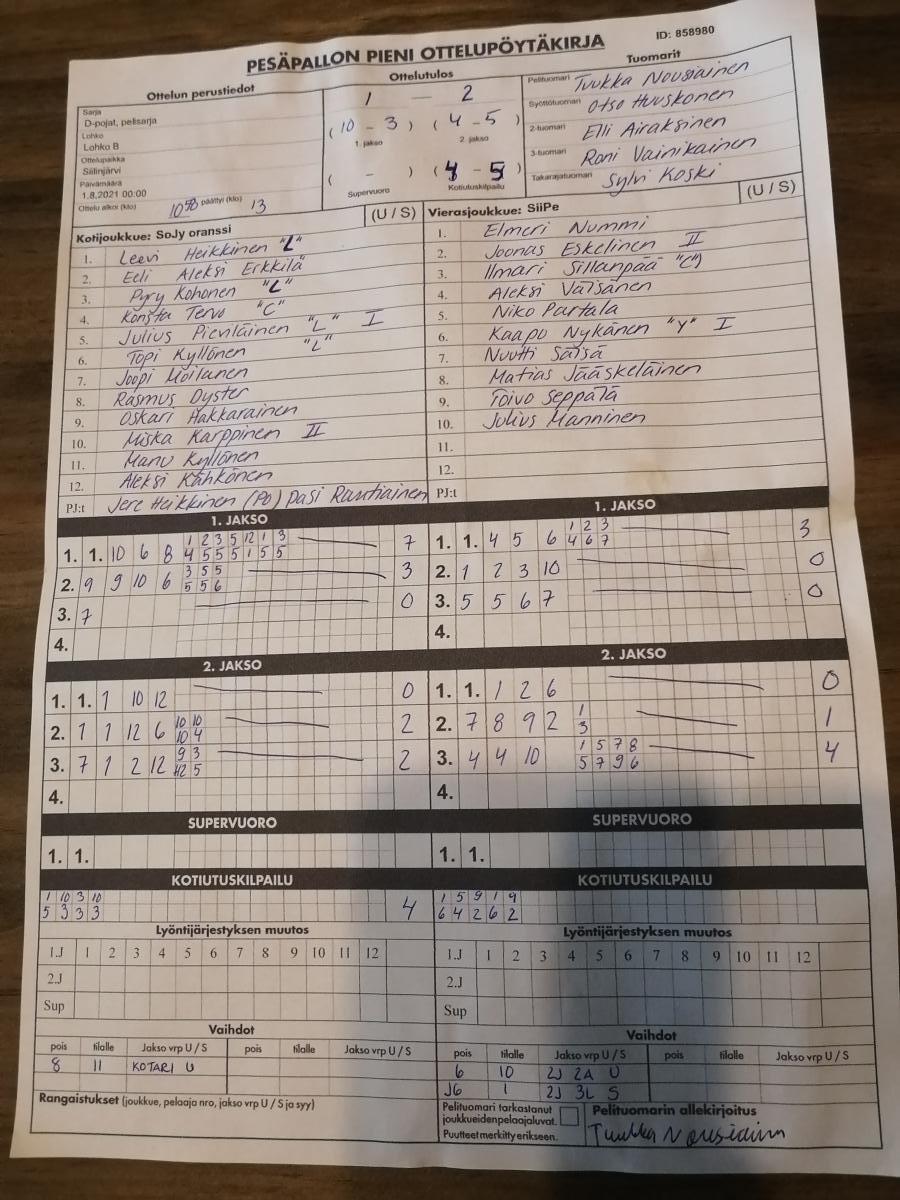 PESÄPALLON PIENI OTTELUPÖYTÄKIRJA
ID: 858980
Ottelun perustiedot
Sarja
D-pojat, pelisarja
Lohko
Lohko B
Ottelupaikka
Siilinjärvi
Päivämäärä
1.8.2021 00:00
Ottelu alkoi (klo) 1050 päättyi (klo) 13
Ottelutulos
1 — 2
( 10 - 3 ) ( 4 - 5 )
1. jakso 2. jakso
( - ) ( 4 - 5 )
Supervuoro Kotiutuskilpailu
Tuomarit
Pelituomari Tuukka Nousiainen
Syöttötuomari Otso Huuskonen
2-tuomari Elli Airaksinen
3-tuomari Roni Vainikainen
Takarajatuomari Sylvi Koski
Kotijoukkue: SoJy oranssi (U / S)
1. Leevi Heikkinen "L"
2. Eeli Aleksi Erkkilä
3. Pyry Kohonen "L"
4. Konsta Tervo "C"
5. Julius Pienläinen "L" I
6. Topi Kyllönen "L"
7. Joopi Moilanen
8. Rasmus Dyster
9. Oskari Hakkarainen
10. Miska Karppinen II
11. Manu Kyllönen
12. Aleksi Kähkönen
PJ:t Jere Heikkinen (PO) Pasi Rautiainen
Vierasjoukkue: SiiPe (U / S)
1. Elmeri Nummi
2. Joonas Eskelinen II
3. Ilmari Sillanpää "C"
4. Aleksi Väisänen
5. Niko Partala
6. Kaapo Nykänen "Y" I
7. Nuutti Säisä
8. Matias Jääskeläinen
9. Toivo Seppälä
10. Julius Manninen
11.
12.
PJ:t
1. JAKSO
1 2 3 5 12 1 3
1. 1. 10 6 8 4 5 5 5 1 5 5 7
3 5 5
2. 9 9 10 6 5 5 6 3
3. 7 0
4.
1. JAKSO
1 2 3
1. 1. 4 5 6 4 6 7 3
2. 1 2 3 10 0
3. 5 5 6 7 0
4.
2. JAKSO
1. 1. 1 10 12 0
10 10
2. 1 1 12 6 10 4 2
9 3
3. 7 1 2 12 12 5 2
4.
2. JAKSO
1. 1. 1 2 6 0
1
2. 7 8 9 2 3 1
1 5 7 8
3. 4 4 10 5 7 9 6 4
4.
SUPERVUORO
1. 1.
SUPERVUORO
1. 1.
KOTIUTUSKILPAILU
1 10 3 10
5 3 3 3 4
KOTIUTUSKILPAILU
1 5 9 1 9
6 4 2 6 2
Lyöntijärjestyksen muutos
1.J 1 2 3 4 5 6 7 8 9 10 11 12
2.J
Sup
Lyöntijärjestyksen muutos
1.J 1 2 3 4 5 6 7 8 9 10 11 12
2.J
Sup
Vaihdot
pois tilalle Jakso vrp U / S pois tilalle Jakso vrp U / S
8 11 KOTARI U
Vaihdot
pois tilalle Jakso vrp U / S pois tilalle Jakso vrp U / S
6 10 2J 2A U
J6 1 2J 3L S
Rangaistukset (joukkue, pelaaja nro, jakso vrp U / S ja syy)
Pelituomari tarkastanut
joukkueiden pelaajaluvat.
Puutteet merkitty erikseen.
Pelituomarin allekirjoitus
Tuukka Nousiainen